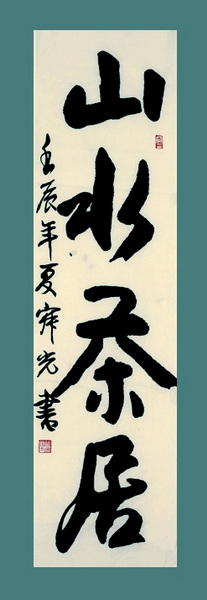 山水茶居
壬辰年夏宰光書